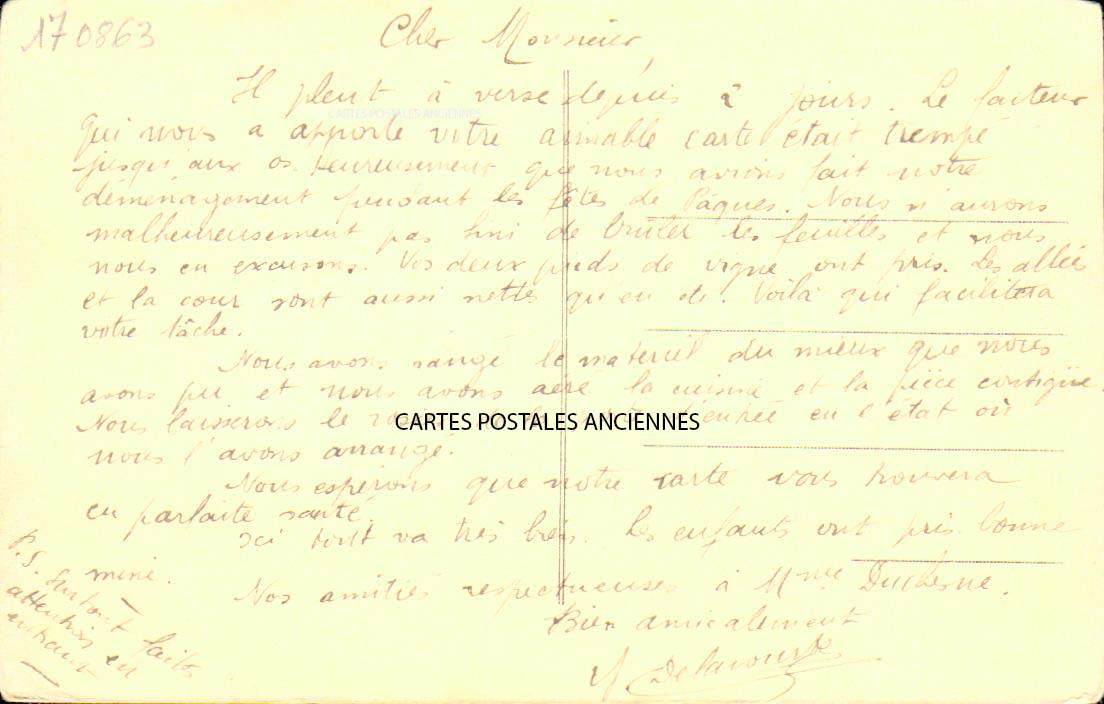 170863
Cher Monsieur,
Il pleut à verse depuis 2 jours. Le facteur
CARTES POSTALES ANCIENNES
qui nous a apporté votre aimable carte était trempé
jusqu'aux os. Heureusement que nous avions fait notre
déménagement pendant les fêtes de Pâques. Nous n'aurons
malheureusement pas fini de brûler les feuilles et nous
nous en excusons. Vos deux pieds de vigne ont pris. Les allées
et la cour sont aussi nettes qu'en été. Voilà qui facilitera
votre tâche.
Nous avons rangé le matériel du mieux que nous
avons pu et nous avons aéré la cuisine et la pièce contigüe.
Nous laisserons le d'entrée en l'état où
CARTES POSTALES ANCIENNES
nous l'avons arrangé.
Nous espérons que notre carte vous trouvera
en parfaite santé.
Ici tout va très bien. Les enfants ont pris bonne
mine.
Nos amitiés respectueuses à Mme Duchesne.
Bien amicalement
P.S. Surtout faites
attention en
entrant